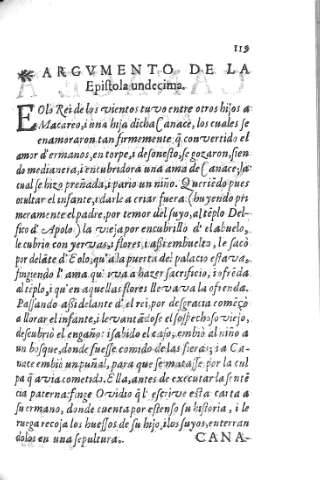 119
ARGVMENTO DE LA
Epistola undecima.
EOlo Rei de los vientos tuvo entre otros hijos a
Macareo, i una hija dicha Canace, los cuales se
enamoraron tan firmemente q̃ convertido el
amor d'ermanos, en torpe, i desonesto, se gozaron, sien
do medianera, i encubridora una ama de Canace, la
cual se hizo preñada, i pario un niño. Queriẽdo pues
ocultar el infante, i darle a criar fuera (huyendo pri
meramente el padre, por temor del suyo, al tẽplo Del-
fico d'Apolo) la vieja por encubrillo d'el abuelo,
le cubrio con yervas, i flores, i assi embuelto, le sacò
por delãte d'Eolo, qu'a la puerta del palacio estava,
fingiendo l'ama qu'iva a hazer sacrificio, i ofrẽda
al tẽplo, i qu'en aquellas flores llevava la ofrenda.
Passando assi delante d'el rei, por desgracia comẽçò
a llorar el infante, i levantãdose el sospechoso viejo,
descubriò el engaño: i sabido el caso, embiò al niño a
un bosque, donde fuesse comido de las fieras; i a Ca-
nace embiò un puñal, para que se matasse por la cul
pa q̃ avia cometido. Ella, antes de executar la sentẽ
cia paterna finge Ovidio q̃l escrive esta carta a
su ermano, donde cuenta por estenso su historia, i le
ruega recoja los huessos de su hijo, i los suyos, enterran
dolos en una sepultura.
CANA-